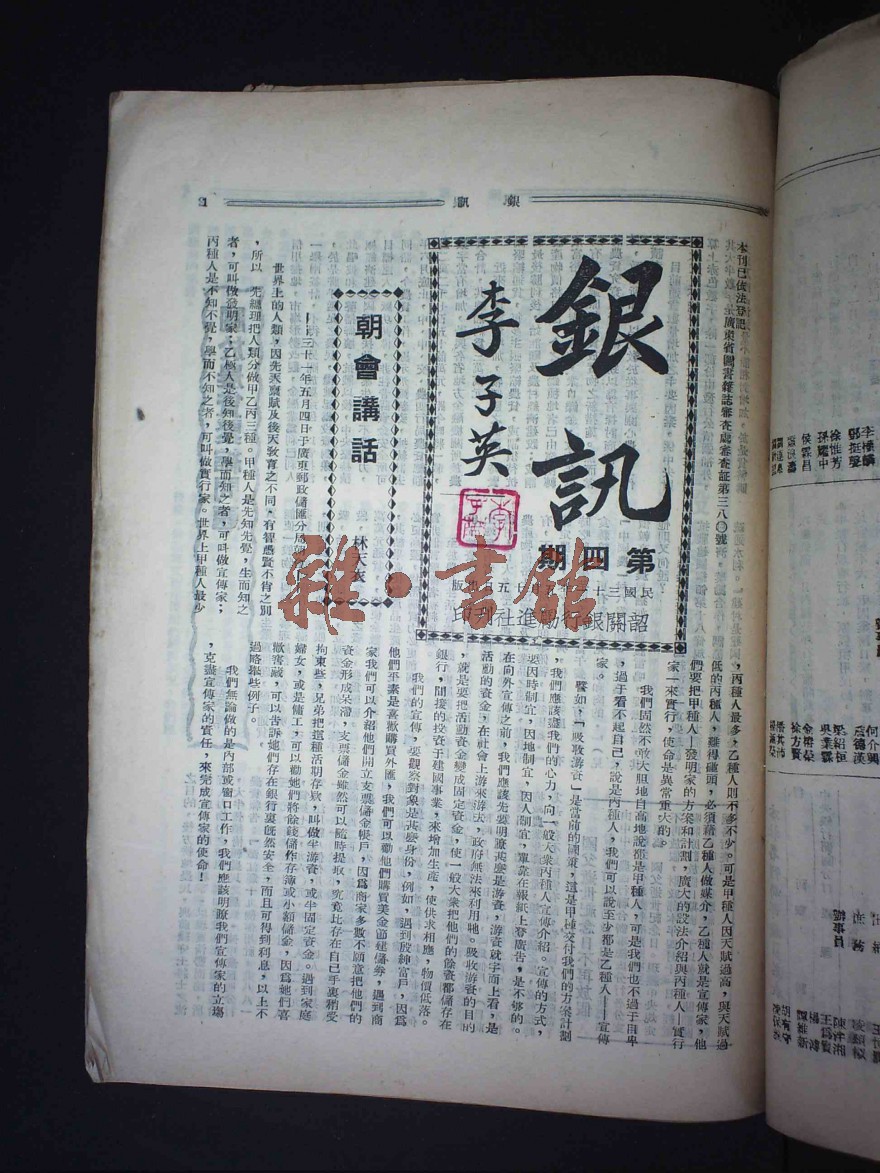 本刊已依法登記
廣東省圖書雜誌審查處審查証第三八〇號
銀訊
李子英
第四期
韶關銀行勵進社刊印
朝會講話
三十一年五月四日于廣東郵政儲匯分局
林天表
世界上的人類，因先天稟賦及後天敎育之不同，有智愚賢不肖之別
，所以　先總理把人類分做甲乙丙三種。甲種人是先知先覺，生而知之
者，可叫做發明家；乙種人是後知後覺，學而知之者，可叫做宣傳家；
丙種人是不知不覺，學而不知之者，可叫做實行家。世界上甲種人最少
，丙種人最多，乙種人則不多不少。可是甲種人因天賦過高，與天賦過
低的丙種人，難得碰頭，必須藉乙種人做媒介，乙種人就是宣傳家，他
們要把甲種人—發明家的方案和計劃，廣大的設法介紹與丙種人—實行
家一來實行，使命是異常重大的。
我們固然不敢大胆地自高地說都是甲種人，可是我們也不過于自卑
，過于看不起自己，說是丙種人，我們可以說至少都是乙種人—宣傳
家。
譬如，「吸收游資」是當前的國策，這是甲種交付我們的方案計劃
，我們應該盡我們的心力，向一般大衆丙種人宣傳介紹。宣傳的方式，
要因時制宜，因地制宜，因人制宜，單靠在報紙上登廣告，是不够的。
在向外宣傳之前，我們應該先要明瞭甚麽是游資，游資就字而上看，是
活動的資金，在社會上游來游去，政府無法來利用牠。吸收游資的目的
，就是要把活動資金變成固定資金，使一般大衆把他們的餘資都儲存在
銀行，間接的投資于建國事業，來增加生產，使供求相應，物價低落。
我們的宣傳，要觀察對象是甚麽身份，例如，遇到殷紳富戶，因爲
他們平素是喜歡購買外匯，我們可以勸他們購買美金節建儲券，遇到商
家我們可以介紹他們開立支票儲金帳戶，因爲商家多數不願意把他們的
資金形成呆滯，支票儲金雖然可以隨時提取，究竟比存在自己手裏稍受
拘束些，兄弟把這種活期存欵，叫做半游資，或半固定資金。遇到家庭
婦女，或是傭工，可以勸她們將餘錢儲作存簿或小額儲金，因爲她們喜
歡窖藏，可以告訴她們存在銀行裏旣然安全，而且可得到利息，以上不
過略擧些例子。
我們無論做的是內部或窗口工作，我們應該明瞭我們宣傳家的立塲
，克盡宣傳家的責任，來完成宣傳家的使命！
雜·書館